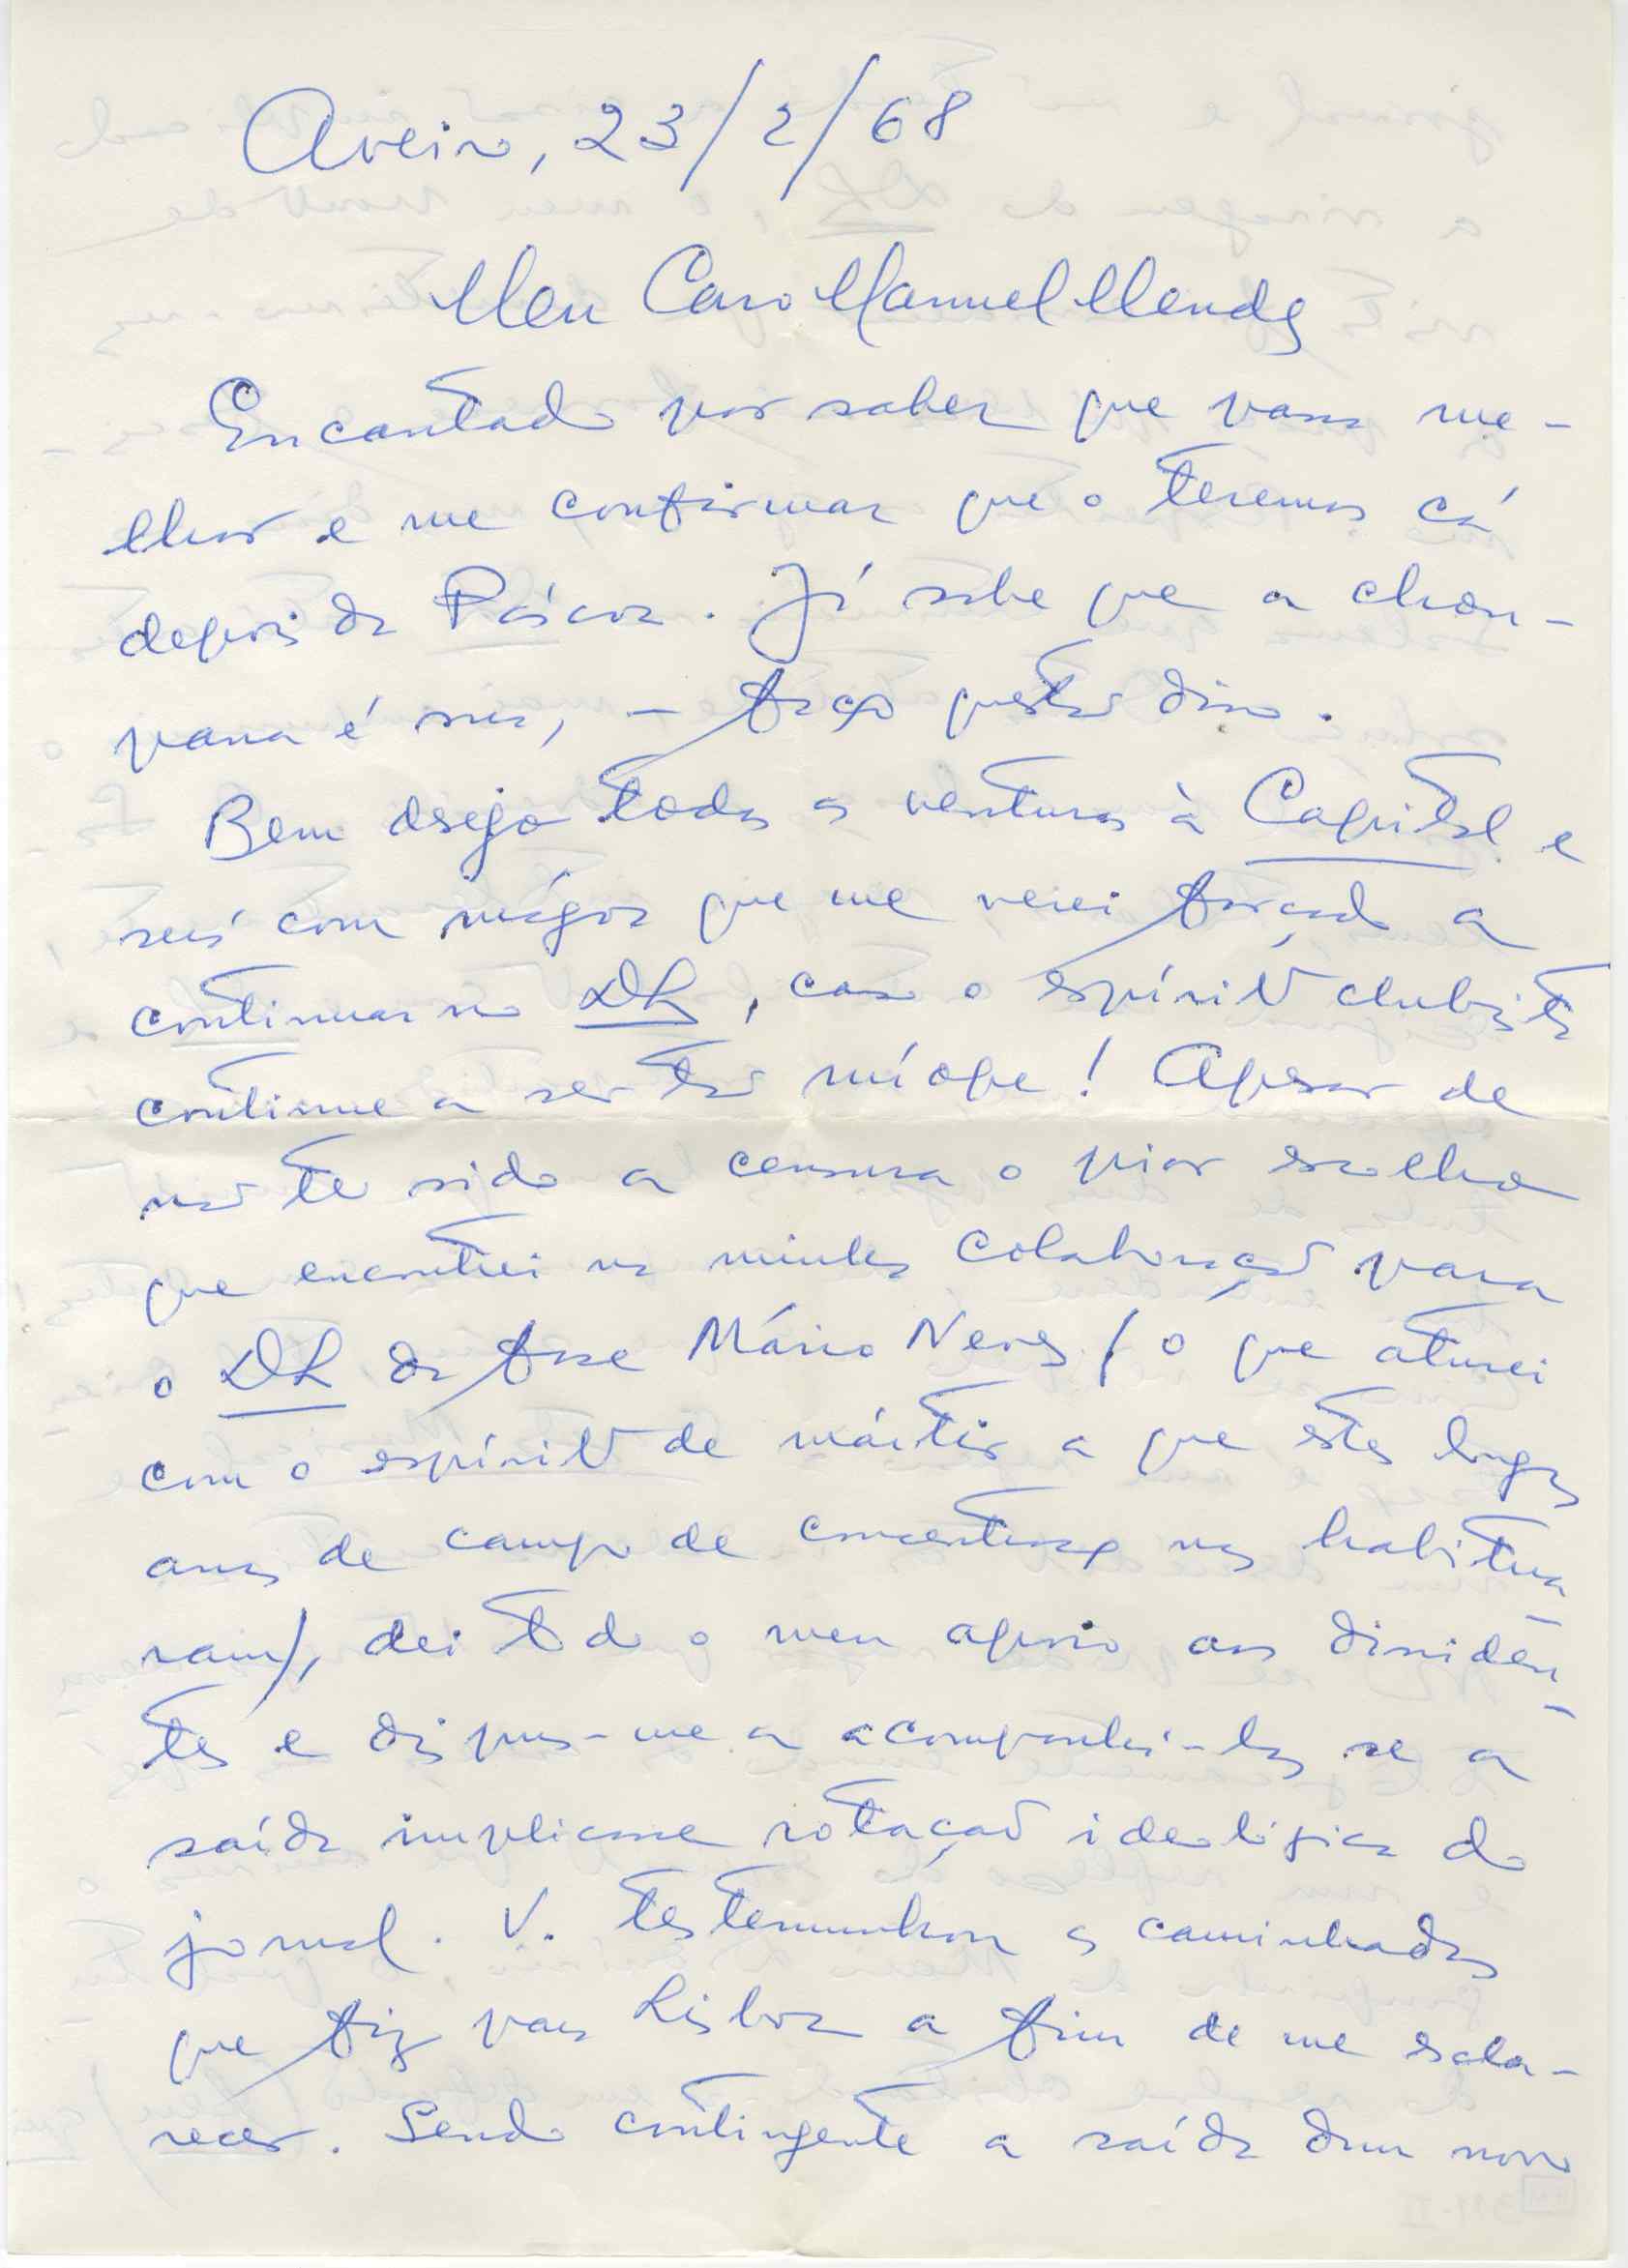 Aveiro, 23/2/68
Meu Caro Manuel Mendes
Encantado por saber que passa me-
lhor e me confirmar que o teremos cá
depois da Páscoa. Já sabe que a chou-
pana é sua, – faço questão disso.
Bem desejo todas as venturas à Capital e
será com mágoa que me verei forçado a
continuar no DL, caso o espírito clubista
continue a ser tão míope! Apesar de
não ter sido a censura o pior escolho
que encontrei na minha colaboração para
o DL da fase Mário Neves (o que aturei
com o espírito de mártir a que estes longos
anos de campo de concentração nos habitua
ram), dei todo o meu apoio aos dissiden-
tes e dispus-me a acompanhá-los se a
saída implicasse rotação ideológica do
jornal. V. testemunhou as caminhadas
que fiz para Lisboa a fim de me escla-
recer. Sendo contingente a saída dum novo